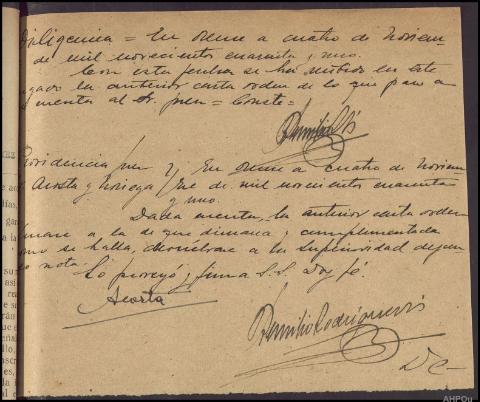 Diligencia = En Orense a cuatro de Noviem-
de mil novecientos cuarenta y uno.
Con esta fecha se ha recibido en este
gado la anterior carta orden de lo que paso a
cuenta al Sr. Juez = Conste =
Providencia Juez } En Orense a cuatro de Noviem
Acosta y Noriega } de mil novecientos cuarenta
y uno.
Dada cuenta, la anterior carta orden
a la de que dimana y cumplimentada
como se halla, devuélvase a la Superioridad dejan-
do nota.
Lo proveyó y firma S.S. Doy fé.
Acosta
AHPOu